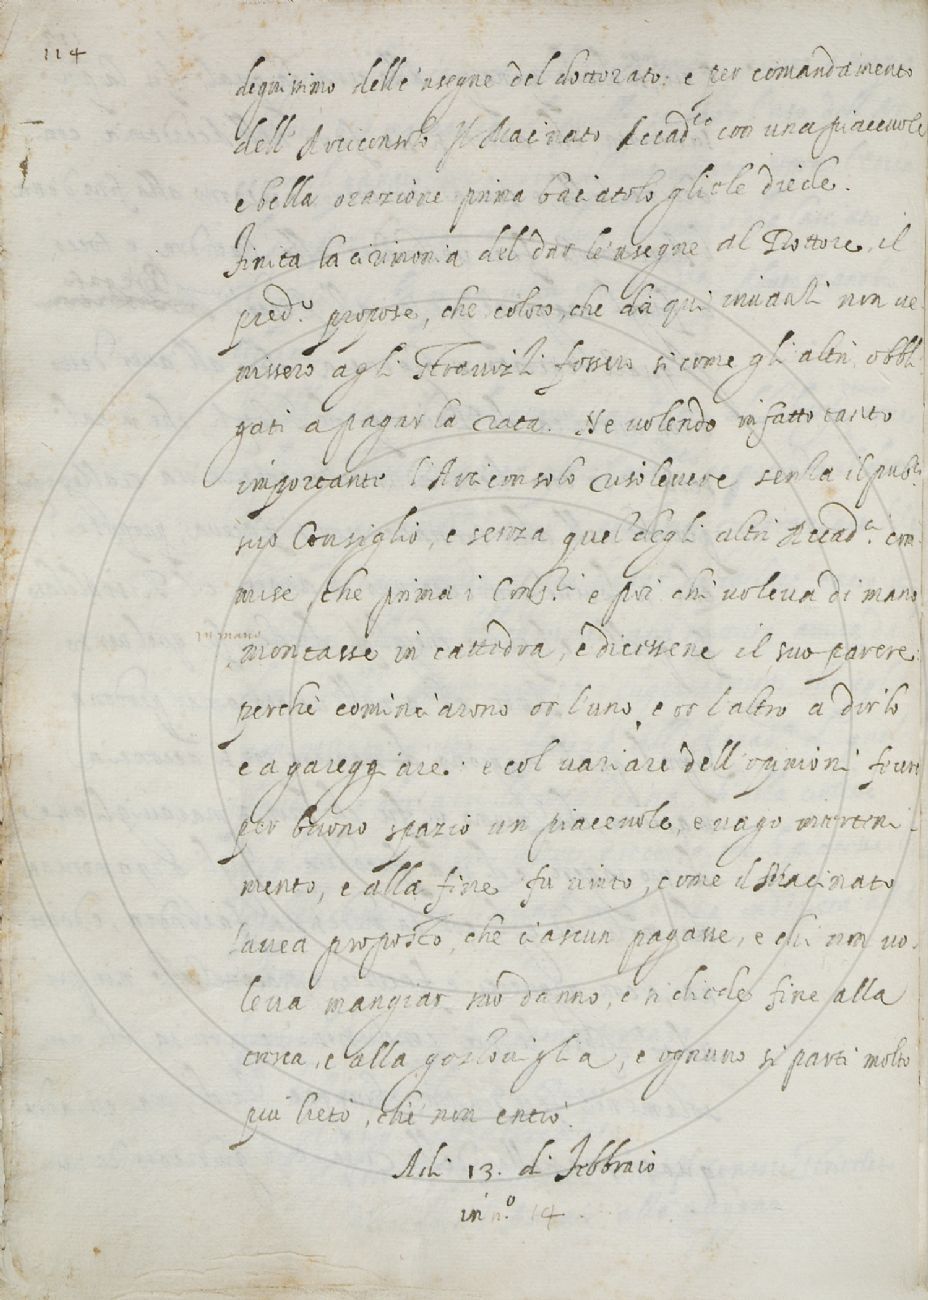 114
degnissimo delle 'nsegne del dottorato: e per comandamento
dell' Arciconsolo il Macinato Accad.co con una piacevole
e bella orazione prima baciatolo gliele diede.
Finita la cirimonia del dar le 'nsegne al Dottore, il
pred.o propose, che coloro, che da qui innanzi non ve-
nissero agli Stravizzi fossero sì come gli altri obbli-
gati a pagar la rata. Ne volendo in fatto tanto
importante l'Arciconsolo risolevere senza il pub.o
suo Consiglio, e senza quel degli altri Accad.ci com-
mise che prima i Cons.ri e poi chi voleva di mano
in mano
montasse in cattedra, e dicessene il suo parere:
perchè cominciarono or l'uno, e or l'altro a dirlo
e a gareggiare: e col variare dell'opinioni fecero
per buono spazio un piacevole, e vago interteni-
mento, e alla fine fu vinto, come il Macinato
l'avea proposto, che ciascun pagasse, e chi non vo-
leva mangiar suo danno, e si diede fine alla
cena, e alla gozzoviglia, e ognuno si partì molto
più lieto, che non entrò.
Adì 13. di Febbraio
in n.o 14